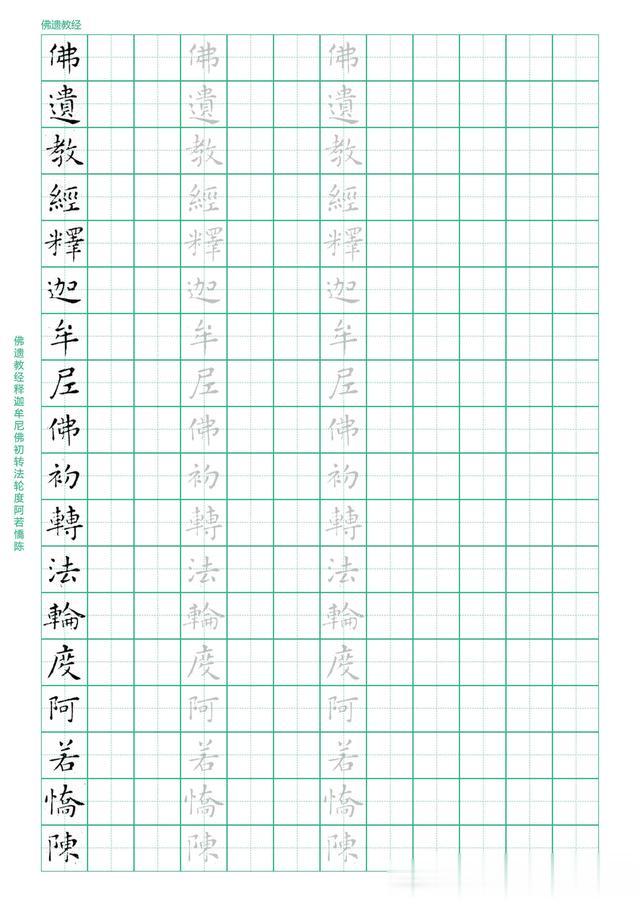 佛遗教经
佛遗教经释迦牟尼佛初转法轮度阿若憍陈
佛 佛 佛
遺 遺 遺
教 教 教
經 經 經
釋 釋 釋
迦 迦 迦
牟 牟 牟
尼 尼 尼
佛 佛 佛
初 初 初
轉 轉 轉
法 法 法
輪 輪 輪
度 度 度
阿 阿 阿
若 若 若
憍 憍 憍
陳 陳 陳